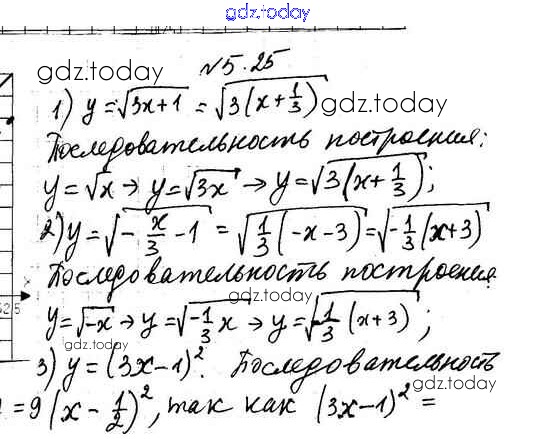 gdz.today
№5.25
gdz.today
1) y=√(3x+1) = √(3(x+1/3)) gdz.today
Последовательность построения:
y=√x → y=√(3x) → y=√(3(x+1/3));
2) y=√(-x/3-1) = √(1/3(-x-3)) = √(-1/3(x+3))
Последовательность построения
gdz.today
y=√(-x) → y=√(-1/3x) → y=√(-1/3(x+3));
gdz.today
3) y=(3x-1)². Последовательность
gdz.today
=9(x-1/2)², так как (3x-1)² =
gdz.today